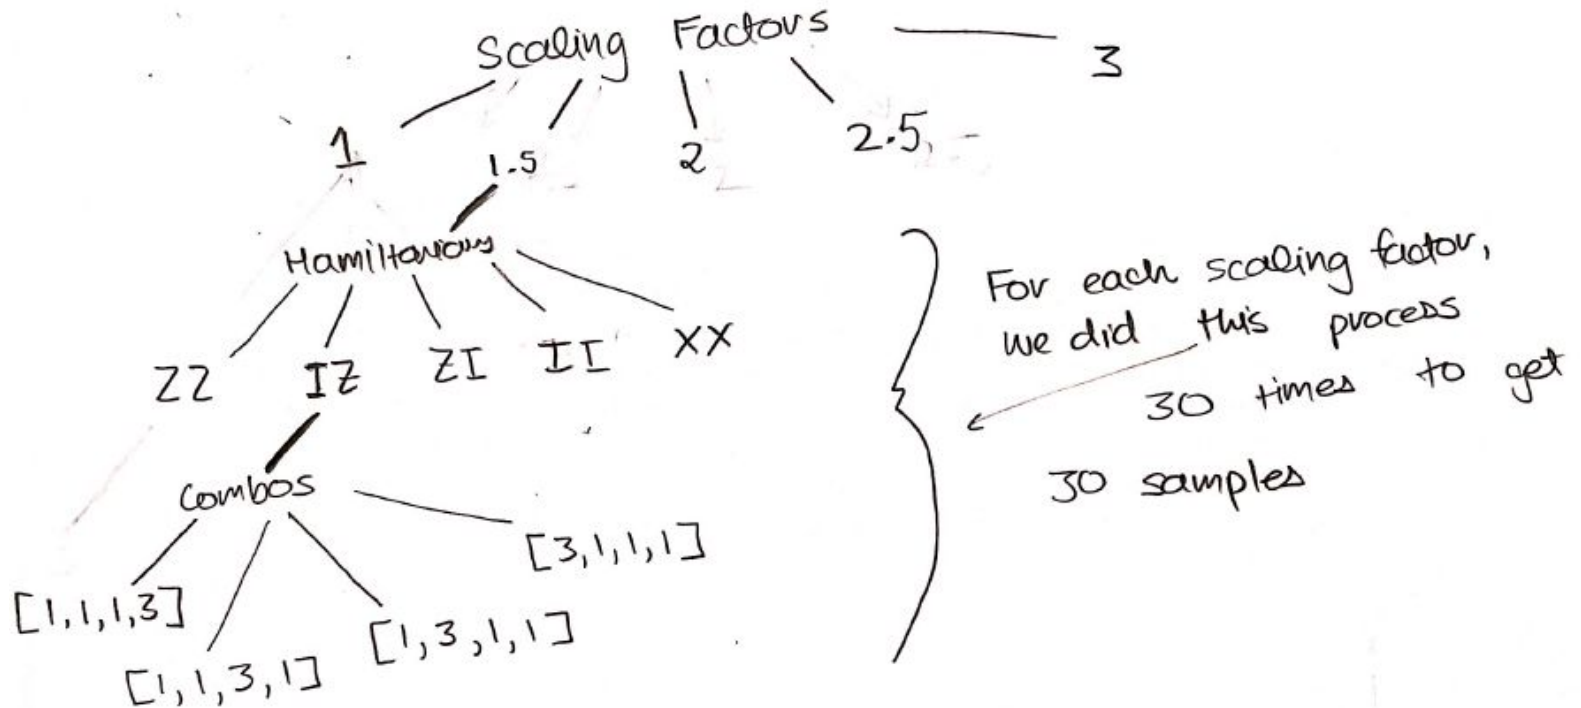 Scaling Factors
1
1.5
2
2.5
3
Hamiltonians
ZZ
IZ
ZI
II
XX
Combos
[1,1,1,3]
[1,1,3,1]
[1,3,1,1]
[3,1,1,1]
For each scaling factor,
we did this process
30 times to get
30 samples